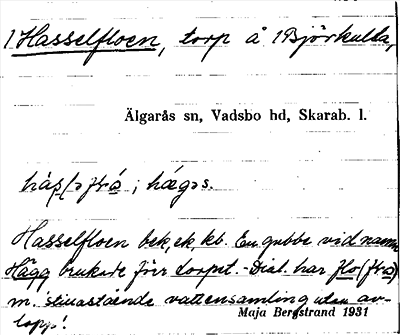 1 Hasselfloen, torp å 1 Björkulla,
Älgarås sn, Vadsbo hd, Skarab. l.
; hägəs.
Hasselfloen bek, ek, kb. En gubbe vid namn
Hägg brukade förr torpet. - Dial. har flo (
m. 'stillastående vattensamling utan av-
lopp'.
Maja Bergstrand 1931